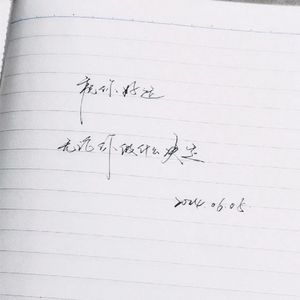 祝你好运
无论你做什么决定
2024.06.05